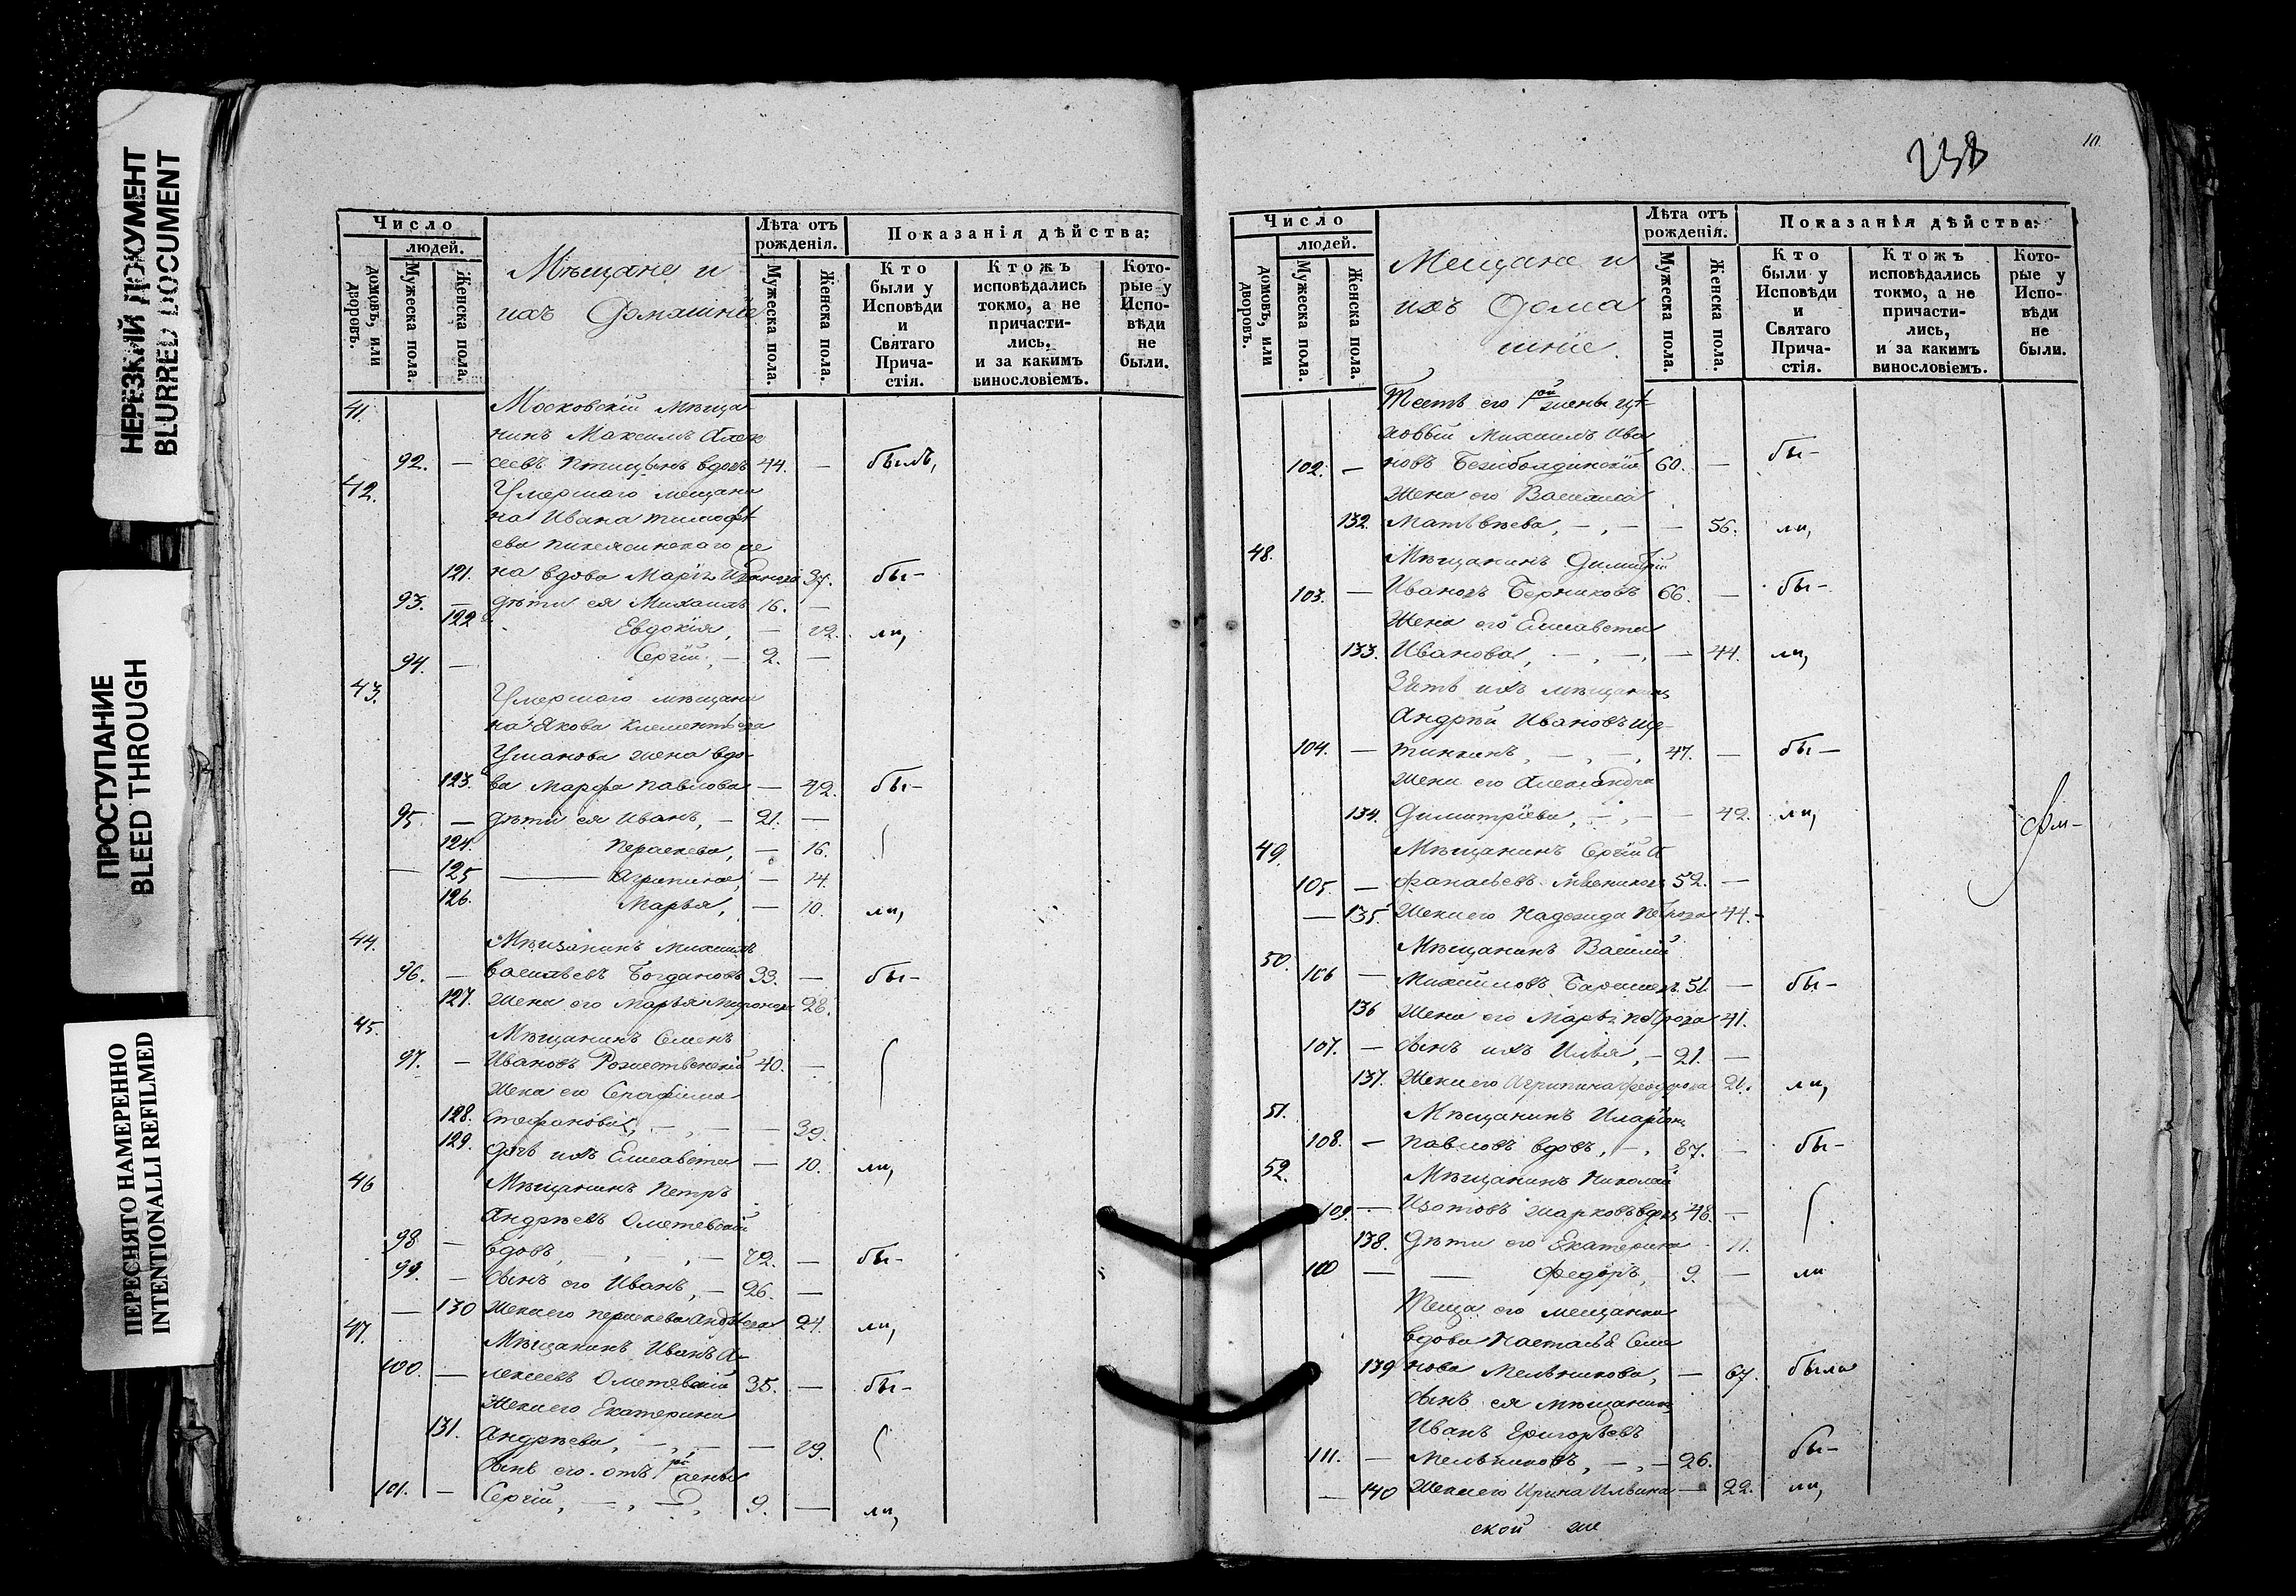 НЕРЕЗКИЙ ДОКУМЕНТ
BLURRED DOCUMENT
ПРОСТУПАНИЕ
BLEED THROUGH
ПЕРЕСНЯТО НАМЕРЕННО
INTENTIONALLI REFILMED
Число
людей.
домовъ, или дворовъ.
Мужеска пола.
Женска пола.
Мѣщане и
ихъ домашніе
Лѣта отъ рожденія.
Мужеска пола.
Женска пола.
Показанія дѣйства:
Кто были у Исповѣди и Святаго Прича-стія.
Ктожъ исповѣдались токмо, а не причасти-лись, и за какимъ винословіемъ.
Кото-рые у Испо-вѣди не были.
41. Московскій мѣща-
нинъ Максимъ Алек
92. — сеевъ Птицынъ вдовъ 44. — былъ,
42. Умершаго мещани
на Ивана Тимофѣ
ева
121. на вдова Марія Иванова 37. бы-
93. — дѣти ея Михаилъ 16. —
122 Евдокія, — 12. ли,
94. — Сергій, — 2. —
43. Умершаго мѣщани
на Якова Клементьева
Ушакова жена вдо-
123. ва Марфа Павлова — 42. бы-
95. — дѣти ея Иванъ, — 21. —
124. Параскева, — 16.
— 125 — Агрипина, — 14.
126. Марья, — 10. ли,
44. Мѣщанинъ Михаилъ
96. — Васильевъ Богдановъ 33. — бы-
127. Жена его Марья Миронова 28.
45. Мѣщанинъ Семенъ
97. — Ивановъ Рожественскій 40. —
Жена его Серафима
128. Стефанова, — , — — 39.
129. дочь ихъ Елисавета — 10. ли,
46 Мѣщанинъ Петръ
Андрѣевъ Ометевскій
98 — вдовъ, — , — , — 72. — бы-
99. — сынъ его Иванъ, — 26. —
— 130 Жена его Параскева Андрѣева 24. ли,
47. Мѣщанинъ Иванъ А-
100. — лексеевъ Ометевскій 35. — бы-
Жена его Екатерина
131. Андрѣева, — , — — 29.
сынъ его отъ 1й жены
101. — Сергій, — , — , 9. — ли,
238
10.
Число
людей.
домовъ, или дворовъ.
Мужеска пола.
Женска пола.
Мещане и
ихъ дома
шніе.
Лѣта отъ рожденія.
Мужеска пола.
Женска пола.
Показанія дѣйства:
Кто были у Исповѣди и Святаго Прича-стія.
Ктожъ исповѣдались токмо, а не причасти-лись, и за какимъ винословіемъ.
Кото-рые у Испо-вѣди не были.
Тесть его 1ой жены цѣ
ховый Михаилъ Ива
102. — новъ 60. — бы-
Жена его Василиса
132. Матвѣева, — , — — 56. ли,
48. Мѣщанинъ Димитрій
103. — Ивановъ Берниковъ 66. — бы-
Жена его Елисавета
133. Иванова, — , — , — 44. ли,
Зять ихъ мѣщанинъ
Андрѣй Ивановъ Ще-
104. — тинкинъ, — , — , 47. — бы—
Жена его Александра
134. Димитріева, — , — — 42. ли,
49. Мѣщанинъ Сергій А
105. — фанасьевъ 52. —
— 135. Жена его Надежда Петрова 44.-
50. Мѣщанинъ Василій
106 — Михайловъ 51. — бы-
136 Жена его Марья Петрова 41.
107. — сынъ ихъ Илья, — 21. —
137. Жена его Агрипина Феодорова 21. ли,
51. Мѣщанинъ Иларіонъ
108. — Павловъ вдовъ, — , 87. — бы-
52. Мѣщанинъ Николай
109. — Изотовъ Жарковъ вдовъ 48. —
138. Дѣти его Екатерина 11.
100 — — Федоръ, 9. — ли
Теща его мещанка
вдова Настасья Семе
139 нова Мельникова, — 67. была
сынъ ея мѣщанинъ
Иванъ Григорьевъ
111. — Мельниковъ, — , — 26. бы-
— 140 Жена его Ирина Ильина — 22. ли,
ской же